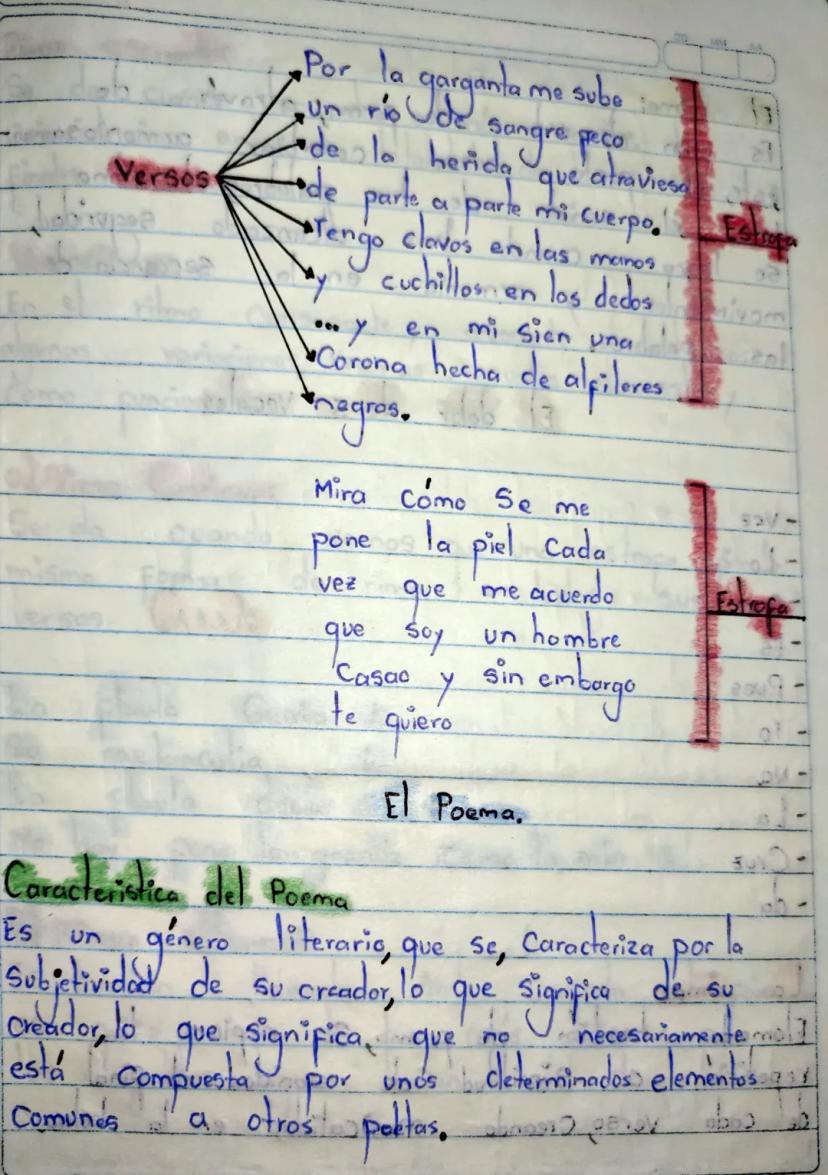 Por la garganta me sube
un río de sangre peco
de la herida que atraviesa
Versos
de parte a parte mi cuerpo.
Tengo clavos en las manos
Estrofa
y cuchillos en los dedos
...y en mi sien una
Corona hecha de alfileres
negros.
Mira cómo se me
pone la piel cada
vez que me acuerdo
Estrofa
que soy un hombre
Casao y sin embargo
te quiero
El Poema.
Caracteristica del Poema
Es un género literario, que se, Caracteriza por la
Subjetividad de su creador, lo que significa de su
Creador, lo que significa, que no necesariamente
está compuesta por unos determinados elementos
Comunes a otros poetas.